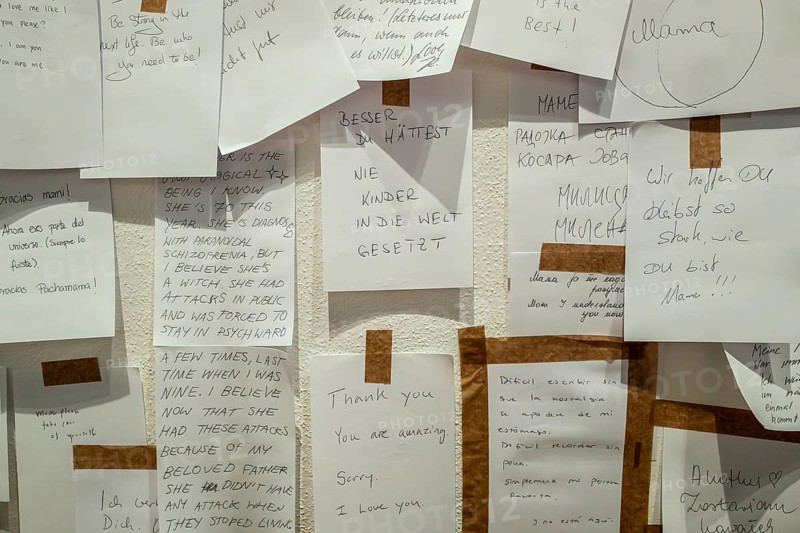 love me like I
you please?
I am you
you are me
Be Strong in the
next life. Be who
you need to be!
bleiben!
wenn auch
es willst.)
is the
Best!
Mama
Gracias mami!
Ahora eres parte del
universo. (Siempre lo
fuiste).
Gracias Pachamama!
IS THE
MAGICAL
BEING I KNOW.
SHE'S 70 THIS
YEAR. SHE IS DIAGNOS
WITH PARANOIDAL
SCHIZOFRENIA, BUT
I BELIEVE SHE'S
A WITCH. SHE HAD
ATTACKS IN PUBLIC
AND WAS FORCED TO
STAY IN PSYCHWARD
A FEW TIMES, LAST
TIME WHEN I WAS
NINE. I BELIEVE
NOW THAT SHE
HAD THESE ATTACKS
BECAUSE OF MY
BELOVED FATHER
SHE DIDN'T HAVE
ANY ATTACK WHEN
THEY STOPED LIVING
BESSER
DU HÄTTEST
NIE
KINDER
IN DIE WELT
GESETZT
MAME
РАДОЈКА СТАН
КОСАРА ЈОВА
МИЛИЦА
МИЛЕН
Mom I understand
you now
Wir hoffen Du
bleibst so
stark, wie
Du bist
Mama!!!
mom please
take care
of yourself
Ich
Dich.
Thank you
You are amazing.
Sorry.
I love you.
Difícil escribir sin
que la nostalgia
se apodere de mi
estómago.
Difícil recordar sin
pena.
Simplemente mi persona
favorita.
Y no está aquí.
Meine
war
Ich
einmal
kommt
PHOTO12